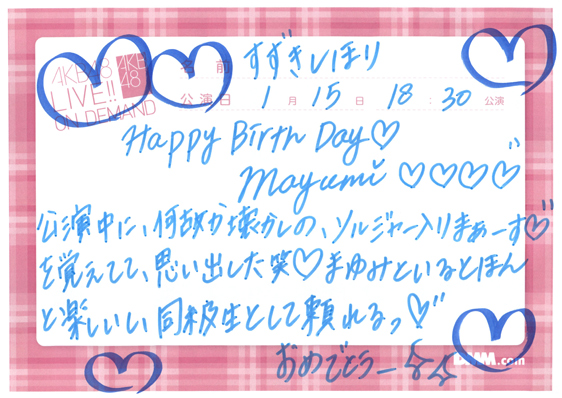 AKB48 AKB48
LIVE!!
ON DEMAND
名前 すずきしほり
公演日 1月15 18:30公演
Happy Birth Day♡
Mayumi ♡♡♡♡
公演中に、何故か壊かしの、ソルジャー入りまぁーす♡
を覚えてて、思い出した笑♡まゆみといるとほん
と楽しいし同級生として頼れるっ♡
おめでとうー☆☆
DMM.com